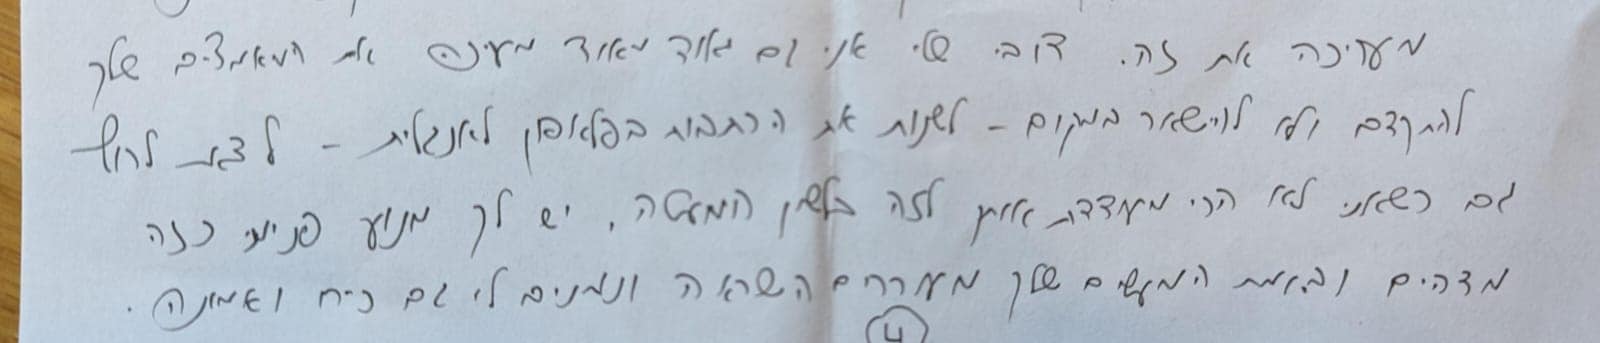 מעריכה את זה. דובי שלי אני גם מאוד מאוד מעריכה את המאמצים שלך
להתקדם ולא להישאר במקום - לשנות את הכתבות בפלאפון לאנגלית - לצאת לרוץ
גם כשאני לא הכי מעודדת אותך לזה בלשון המעטה. יש לך מנוע פנימי כזה
מדהים ובאמת המעשים שלך מעוררים השראה ונותנים לי גם כוח ואמונה.
4